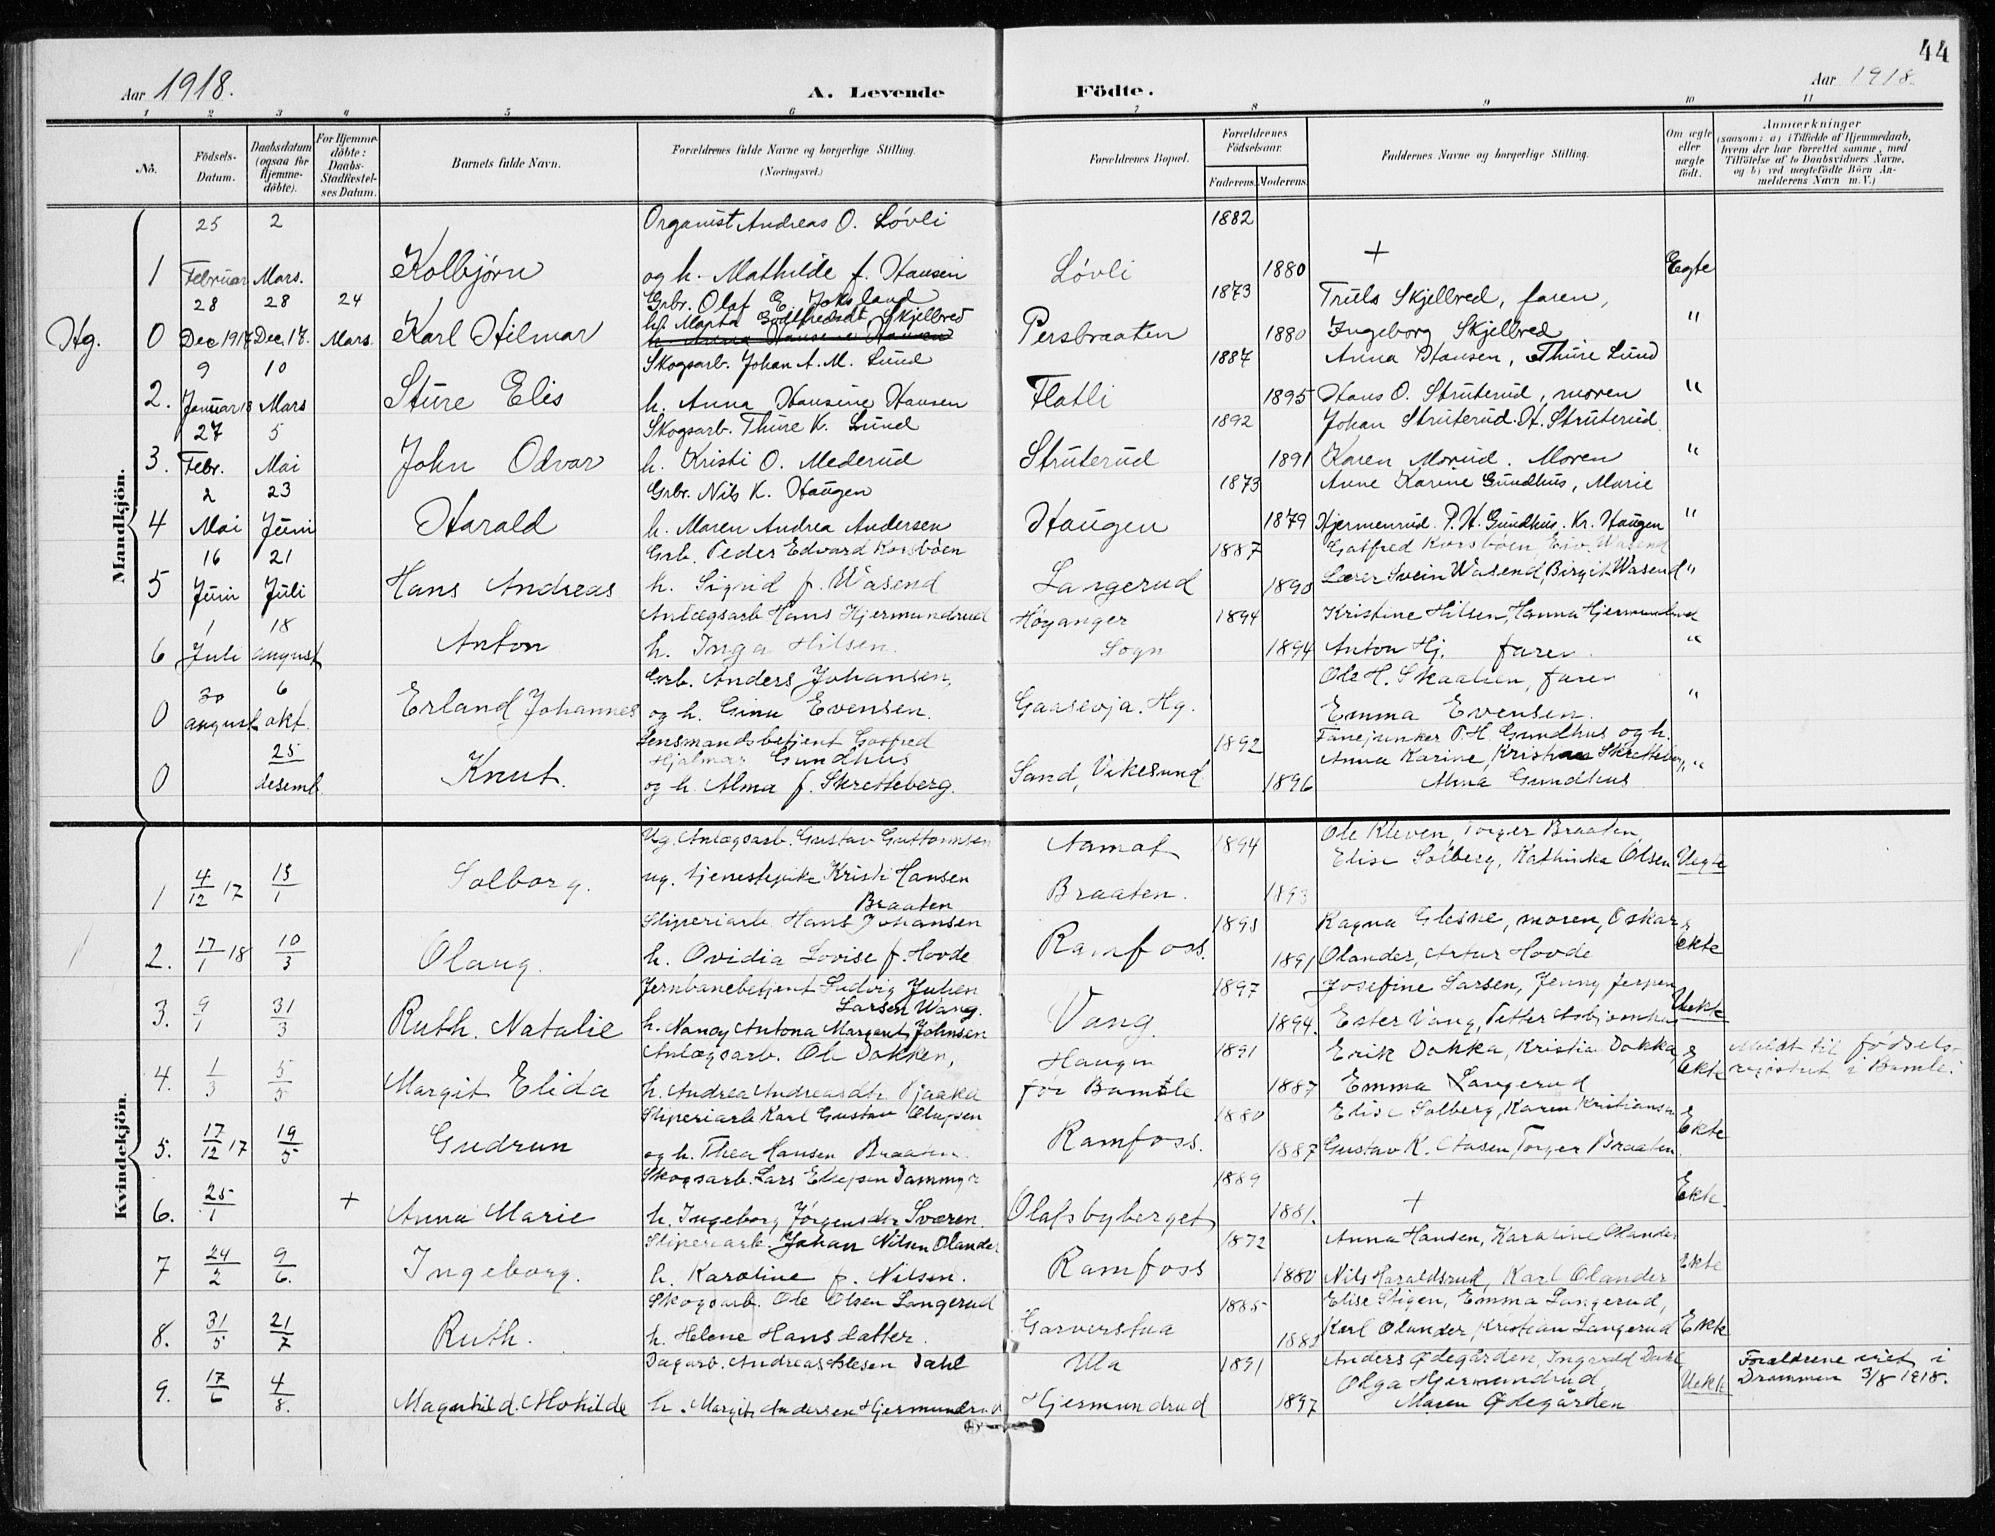 44
Aar 1918.
A. Levende Födte.
Aar 1918.
1 2 3 4 5 6 7 8 9 10 11
No.
Födsels-Datum.
Daabsdatum (ogsaa for Hjemme-döbte).
For Hjemme-döbte: Daabs-Stadfæstel-ses Datum.
Barnets fulde Navn.
Forældrenes fulde Navne og borgerlige Stilling.
(Næringsvei.)
Forældrenes Bopæl.
Forældrenes Födselsaar.
Faderens. Moderens.
Faddernes Navne og borgerlige Stilling.
Om ægte eller uægte födt.
Anmærkninger
(saasom: a) i Tilfælde af Hjemmedaab, hvem der har forrettet samme, med Tilföielse af to Daabsvidners Navne, og b) ved uegtefödte Börn Anmelderens Navn m. V.)
Mandkjön.
25 2 Organist Andreas O. Lövli 1882
1 Februar Mars. Kolbjørn og h. Mathilde f. Hansen Lövli 1880 + Egte
28 28 24 Grbr. Olaf E. Joksland 1873 Truls Skjellred, faren,
Hg. 0 Dec 1917 Dec 17. Mars. Karl Hilmar h. Marta Gudfredsdt Skjelbred Persbraaten 1880 Ingeborg Skjelbred "
h. Anna Hansine Hansen
9 10 Skogsarb. Johan A. M. Lund 1887 Anna Hansen, Thure Lund
2. Januar 18 Mars Sture Elis h. Anna Hansine Hansen Flatli 1895 Hans O. Struterud, moren "
27 5 Skogsarb. Thure K. Lund 1892 Johan Struterud. H. Struterud
3. Febr. Mai John Odvar h. Kristi O. Mederud Struterud 1891 Karen Morud. Moren "
2 23 Grbr. Nils K. Haugen 1873 Anne Karine Gundhus, Marie
4 Mai Juni Harald h. Maren Andrea Andersen Haugen 1879 Hjermenrud. P. H. Gundhus. Kr. Haugen "
16 21 Grb. Peder Edvard Korsbøen 1887 Gotfred Korsbøen, Eiv. Wasend
5 Juni Juli Hans Andreas h. Sigrid f. Wasend Langerud 1890 Lærer Svein Wasend, Birgit Wasend "
1 18 Anlægsarb Hans Hjermundrud Høyanger 1894 Kristine Hilsen, Hanna Hjermundrud
6 Juli august Anton h. Inga Hilsen. Sogn 1894 Anton Hj. faren. "
30 6 Grb. Anders Johansen, Ole H. Skaalien, faren
0 august okt. Erland Johannes og h. Gina Evensen. Gaasevja. Hg. Emma Evensen. "
25 Lensmandsbetjent Gotfred 1892 Fanejunker P. H. Gundhus og h.
Hjalmar Gundhus Anna Karine, Kristian Skretteberg, "
0 desemb. Knut. og h. Alma f. Skretteberg. Sand, Vikesund 1896 Alma Gundhus
Kvindekjön.
Ug. Anlægsarb. Gustav Guttormsen Aamot 1894 Ole Kleven, Torger Braaten,
1 4/12 17 13/1 Solborg. ug. tjenestepike Kristi Hansen Braaten. 1893 Elise Solberg, Kathinka Olsen Uegte
Braaten
Sliperiarb. Hans Johansen 1893 Ragna Glesne, moren, Oskar
2. 17/1 18 10/3 Olaug. h. Ovidia Lovise f. Hovde Ramfoss. 1891 Olander, Artur Hovde Ekte
Jernbanebetjent Ludvig Julien 1897 Josefine Larsen, Jenny Jerpen
Larsen Wang.
3. 9/1 31/3 Ruth. Natalie h. Nancy Antona Margaret Johnsen Vang. 1894. Ester Vang, Petter Asbjørnhus Uekte
Anlægsarb. Ole Dokken, Haugen 1891 Erik Dokka, Kristia Dokka Meldt til fødsels-
4. 1/3 5/5 Margit Elida h. Andrea Andreasdtr. Tjaaka før Bamble 1887 Emma Langerud Ekte registret i Bamle.
Sliperiarb Karl Gustav Olufsen 1880 Elise Solberg, Karen Kristiansen
5. 17/12 17 19/5 Gudrun og h. Thea Hansen Braaten. Ramfoss. 1887 Gustav K. Aasen, Torger Braaten. Ekte
Skogsarb. Lars Ellefsen Dammyr 1889
6. 25/1 + Anna Marie h. Ingeborg Jørgensdtr Sværen. Olafsbyberget 1881. + Ekte.
Sliperiarb. Johan Nilsen Olander 1872 Anna Hansen, Karoline Olander
7 24/2 9/6. Ingeborg. h. Karoline f. Nilsen. Ramfoss 1880 Nils Haraldsrud, Karl Olander Ekte
Skogsarb. Ole Olsen Langerud 1885 Elise Stigen, Emma Langerud,
8. 31/5 21/7 Ruth. h. Helene Hansdatter. Garverstua 1883 Karl Olander, Kristian Langerud Ekte
Dagarb. Andreas Olesen Dahl Ula 1891 Anders Ødegården, Ingvald Dahl Forældrene viet i
Olga Hjermundrud Drammen 3/8 1918.
9. 17/6 4/8. Magnhild Mohilde h. Margit Andersen Hjermundrud Hjermundrud 1897 Maren Ødegården Uekte